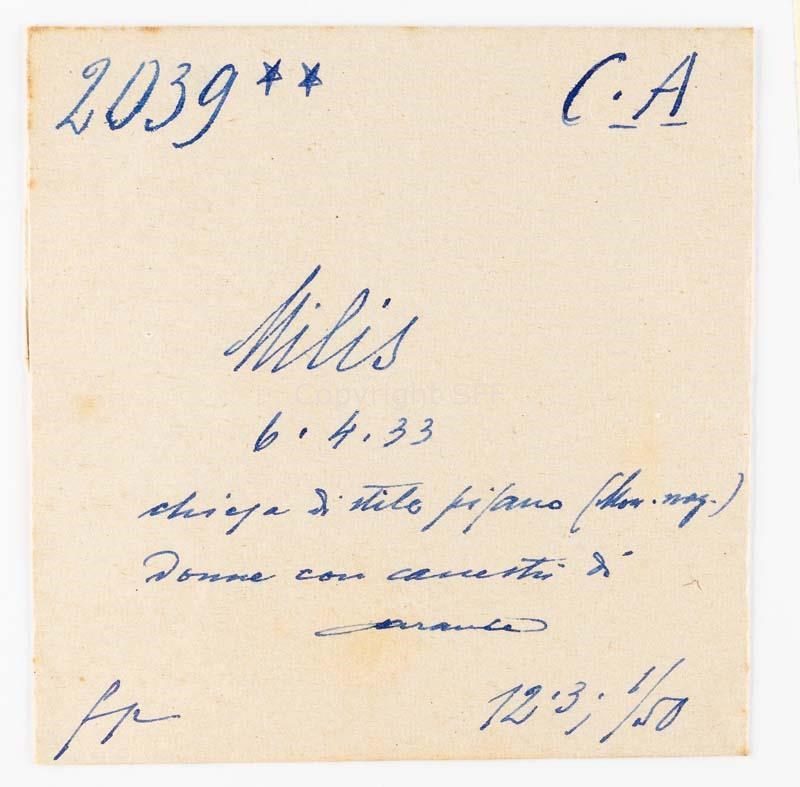 2039** C.A
Milis
Copyright SPF
6.4.33
chiesa di stile pisano (Mon. naz.)
Donne con canestri di
arance
fp 12.3; 1/50